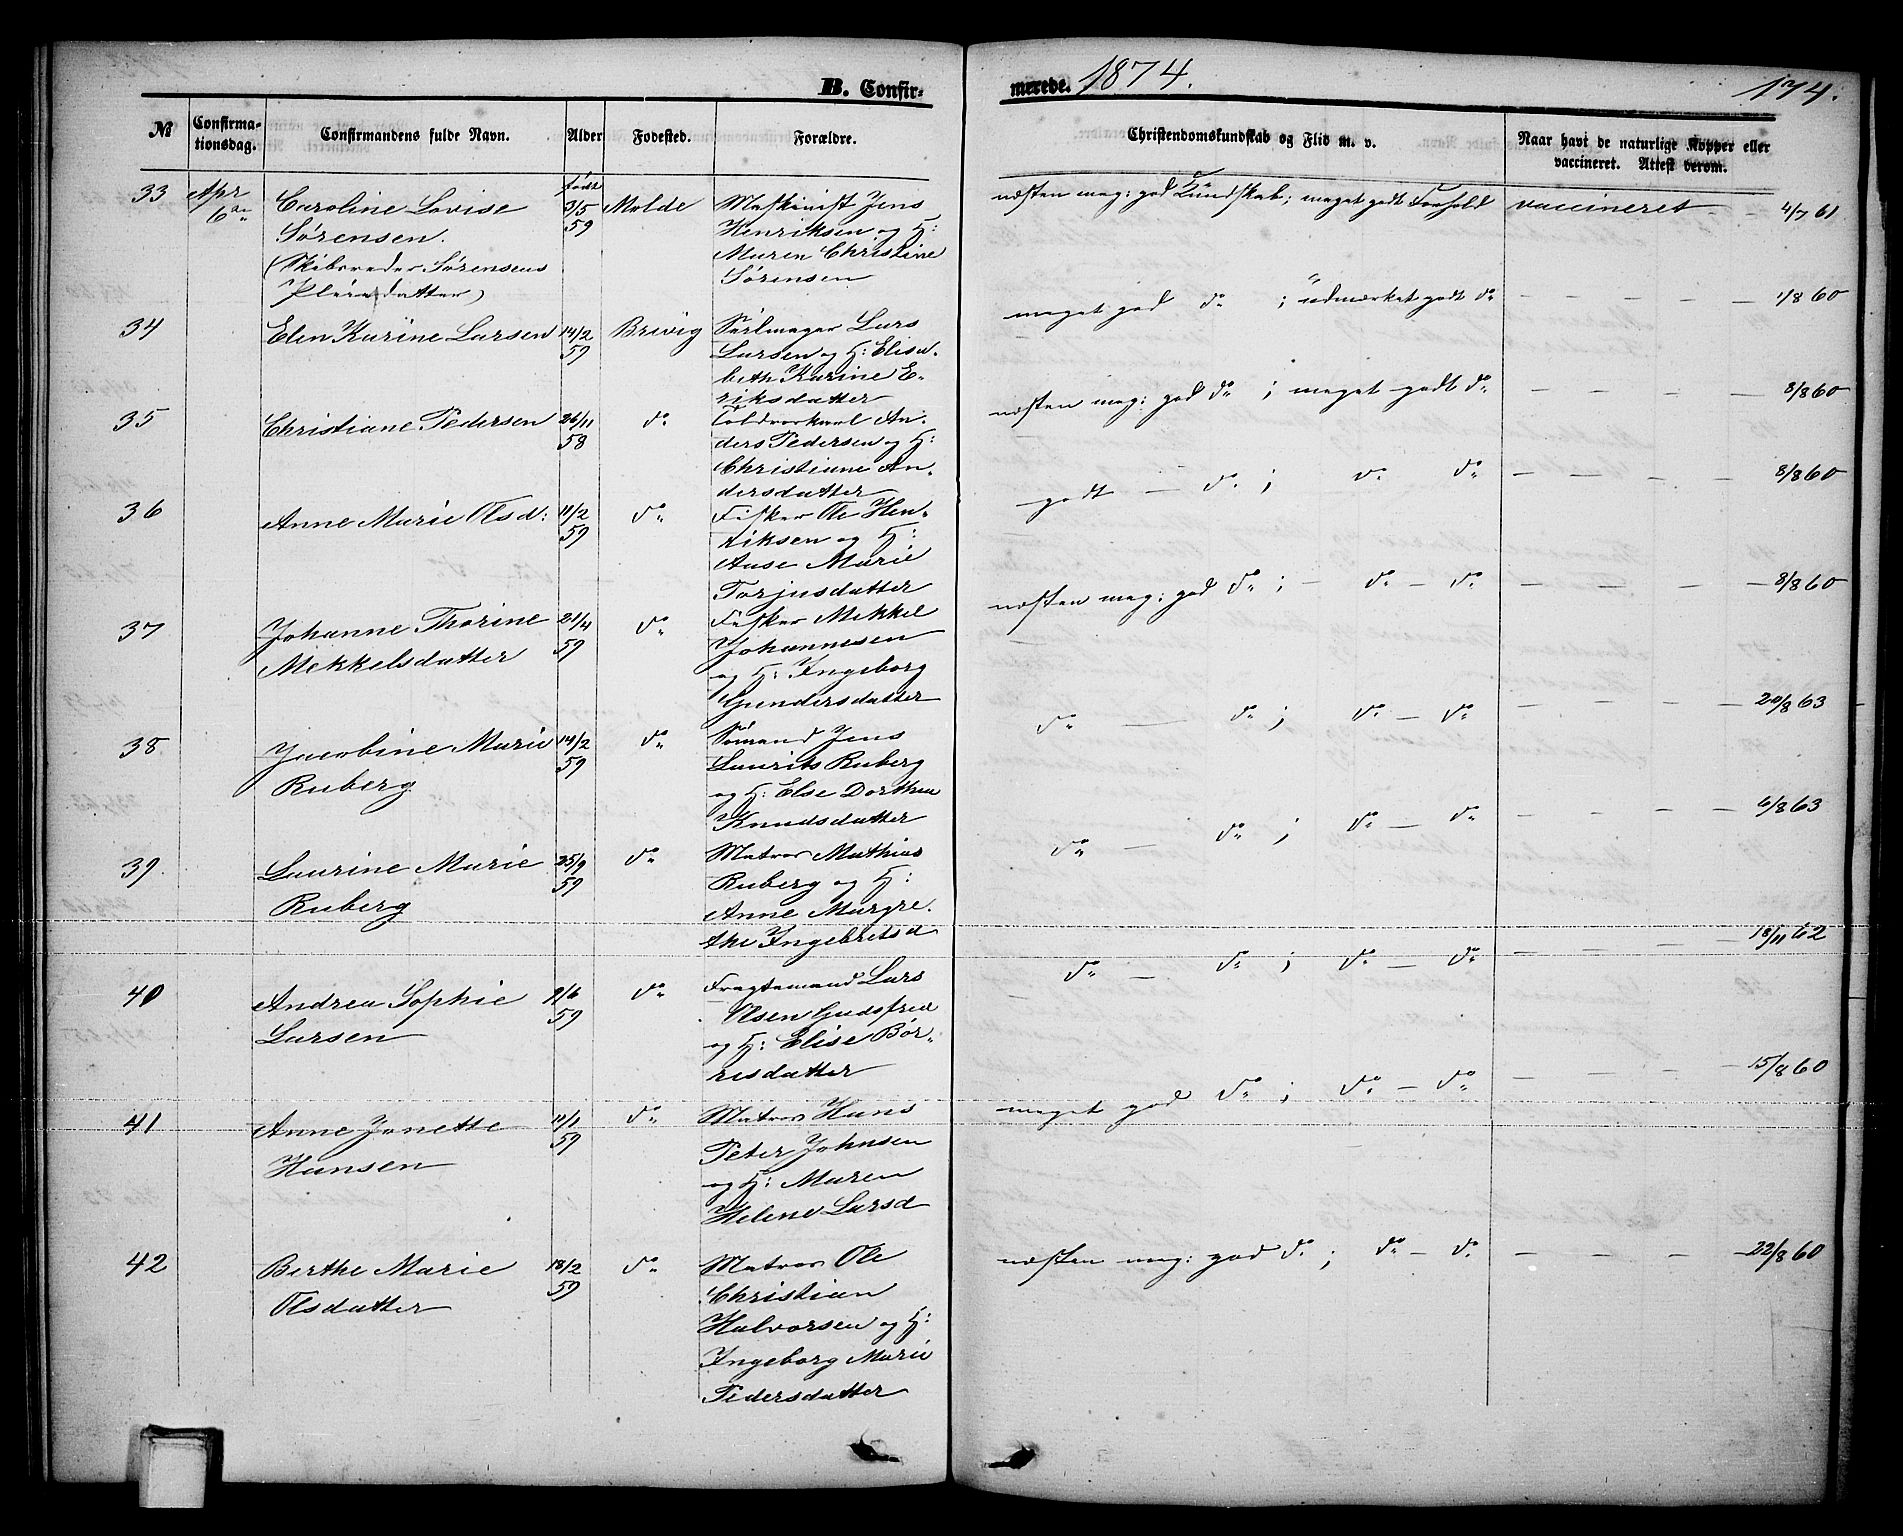 B. Confir-
merede. 1874.
174.
№
Confirma-
tionsdag.
Confirmandens fulde Navn.
Alder
Fødested.
Forældre.
Christendomskundskab og Flid m. v.
Naar havt de naturlige Kopper eller
vaccineret. Attest derom.
33 Apr Caroline Lovise født 3/5 59 Molde Maskinist Jens
6te Sørensen. Henriksen og H:
(Skibsreder Sørensens Maren Christine
Pleiedatter) Sørensen
næsten meg: god Kundskab; meget godt Forhold vaccineret - - 4/7 61
34 Elen Karine Larsen 14/2 59 Brevig Seilmager Lars
Larsen og H: Elisa-
beth Karine E-
riksdatter
meget god do ; udmærket godt do — — — — 1/8 60
35 Christiane Pedersen 26/11 58 do Toldvorkarl An-
ders Pedersen og H:
Christiane An-
dersdatter
næsten meg: god do ; meget godt do — — — — 8/8 60
36 Anne Marie Olsd: 11/2 59 do Fisker Ole Hen-
riksen og H:
Anse Marie
Torjusdatter
godt — do ; do do — — — — 8/8 60
37 Johanne Thorine 21/4 59 do Fisker Mekkel
Mekkelsdatter Johannesen
og H: Ingeborg
Gundersdatter
næsten meg: god do ; — do — do — — — — 8/8 60
38 Jacobine Marie 14/2 59 do Sømand Jens
Ruberg Laurits Ruberg
og H: Else Dorthea
Knudsdatter
do — do ; do — do — — — — 20/8 63
39. Laurine Marie 25/9 59 do Matros Mathias
Ruberg Ruberg og H:
Anne Margre-
the Ingebretsd
do — do ; do — do — — — — 6/8 63
40 Andrea Sophie 9/6 59 do Fragtemand Lars
Larsen Olsen Gudsfred
og H: Elise Bør-
resdatter
do — do ; do — do — — — — 18/11 62
41 Anne Jonette 11/1 59 do Matros Hans
Hansen Peter Johnsen
og H: Maren
Helene Larsd
meget god do ; do — do — — — — 15/8 60
42 Berthe Marie 18/2 59 do Matros Ole
Olsdatter Christian
Halvorsen og H:
Ingeborg Marie
Pedersdatter
næsten meg: god do ; do — do — — — — 22/8 60